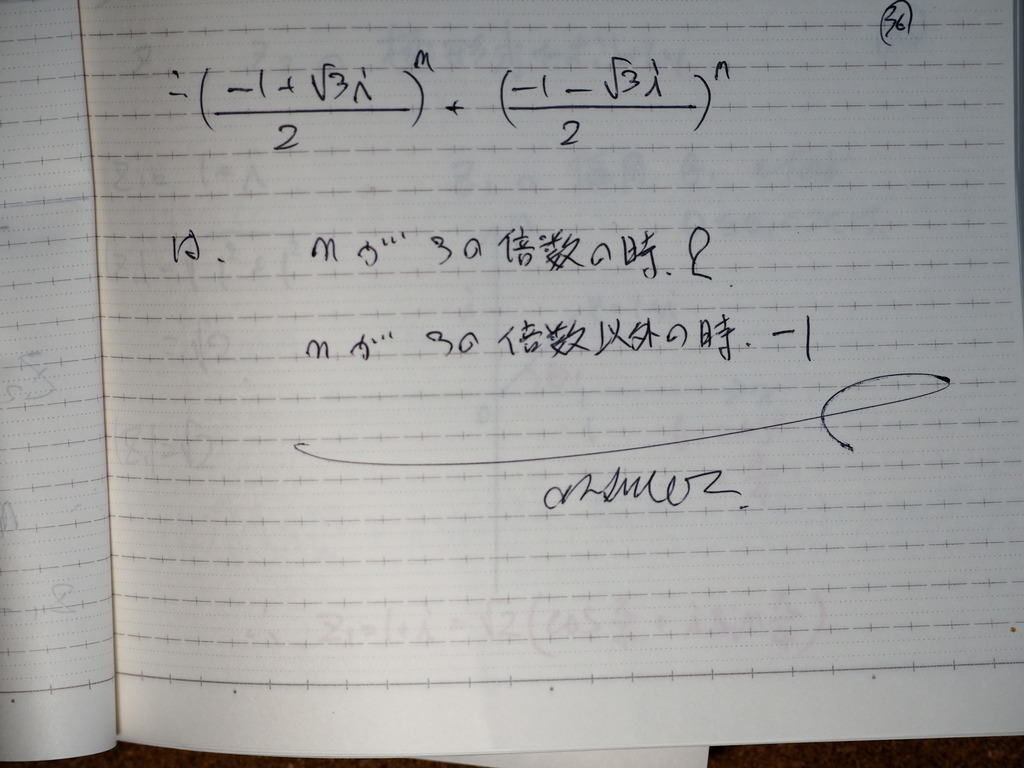 36
∴ (-1+√3i / 2)^n + (-1-√3i / 2)^n
は、 nが 3の倍数の時、2
nが 3の倍数以外の時、-1
answer.